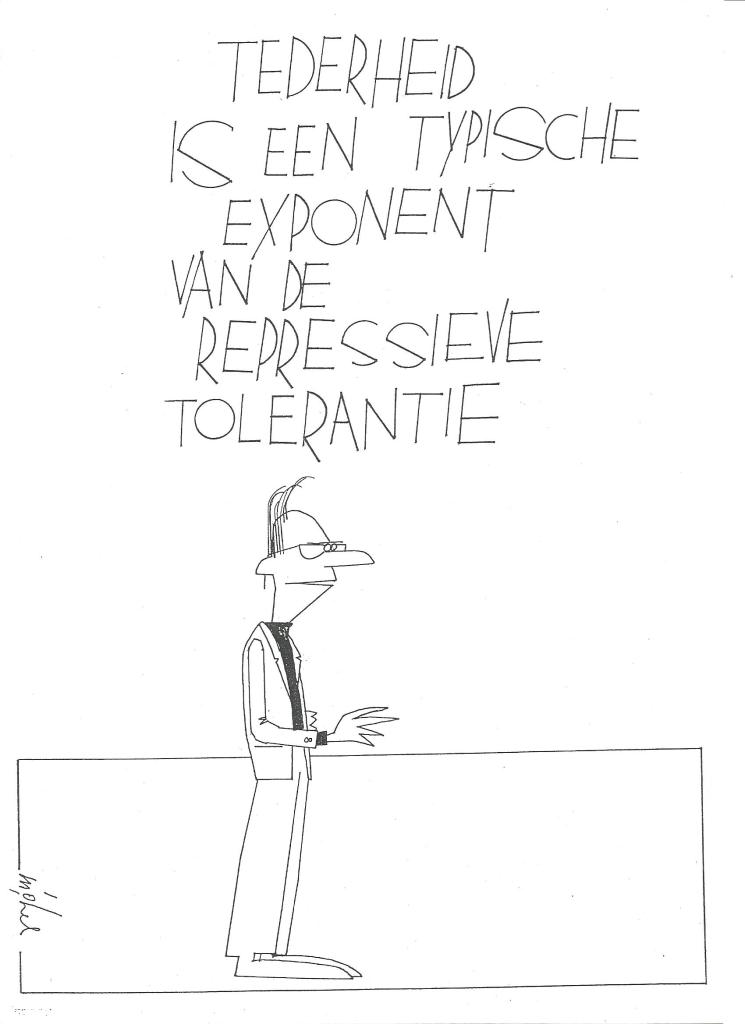 TEDERHEID
IS EEN TYPISCHE
EXPONENT
VAN DE
REPRESSIEVE
TOLERANTIE